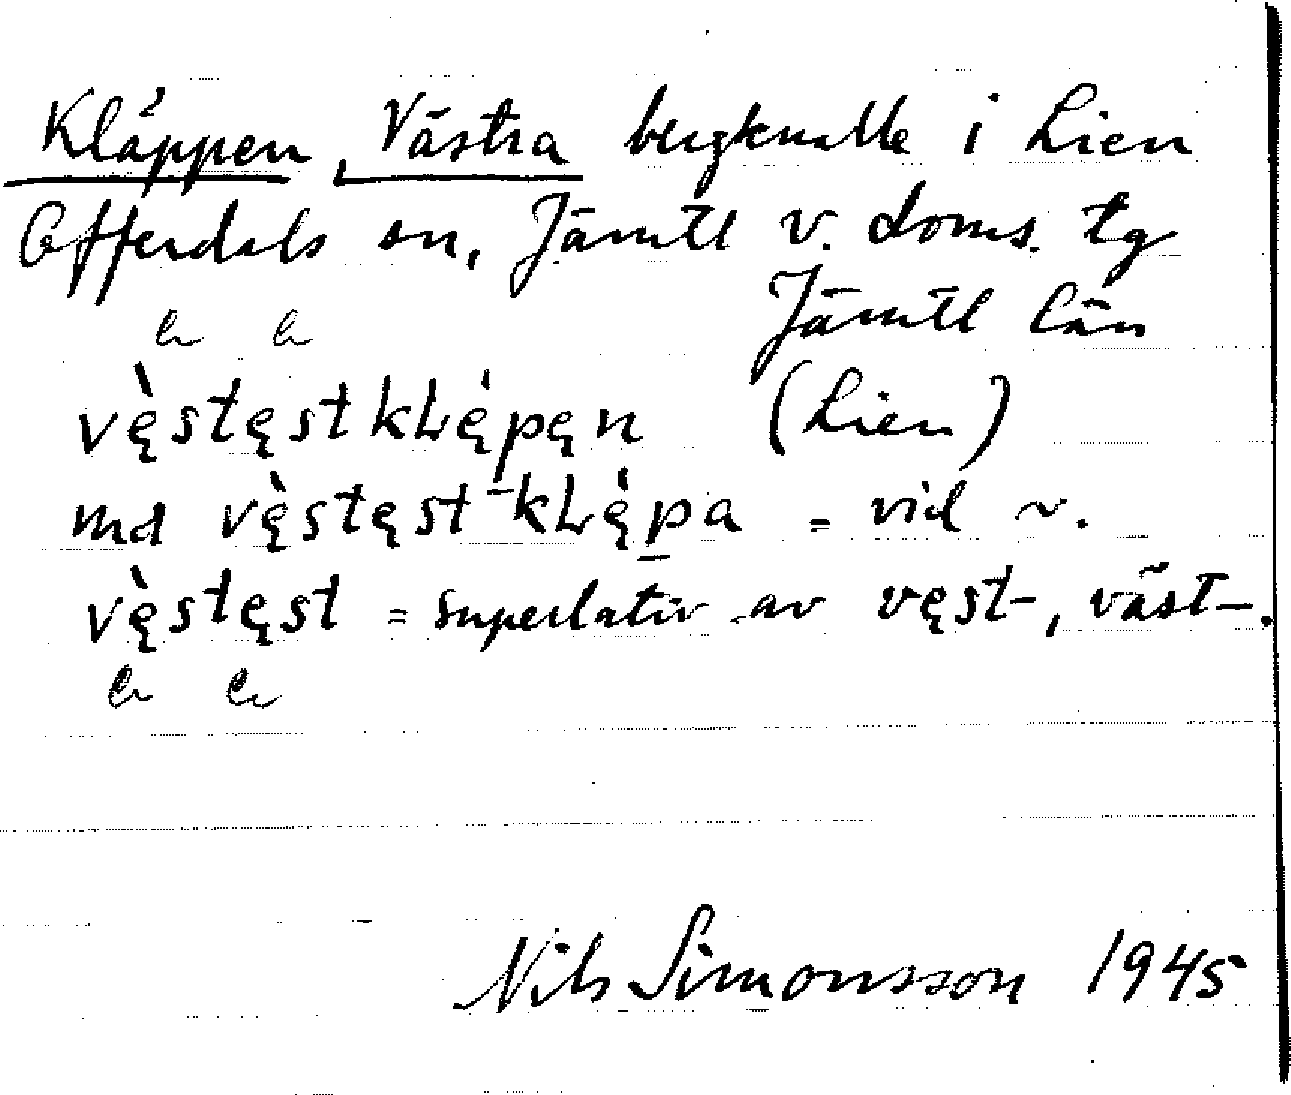 Kläppen, Västra bergknalle i Lien
Offerdals sn, Jämtl v. doms. tg
Jämtl län
vę̀stęstkLę́pęn (Lien)
md vę̀stęst-kLę́pa = vid ~.
vę̀stęst = superlativ av vęst-, väst-.
Nils Simonsson 1945